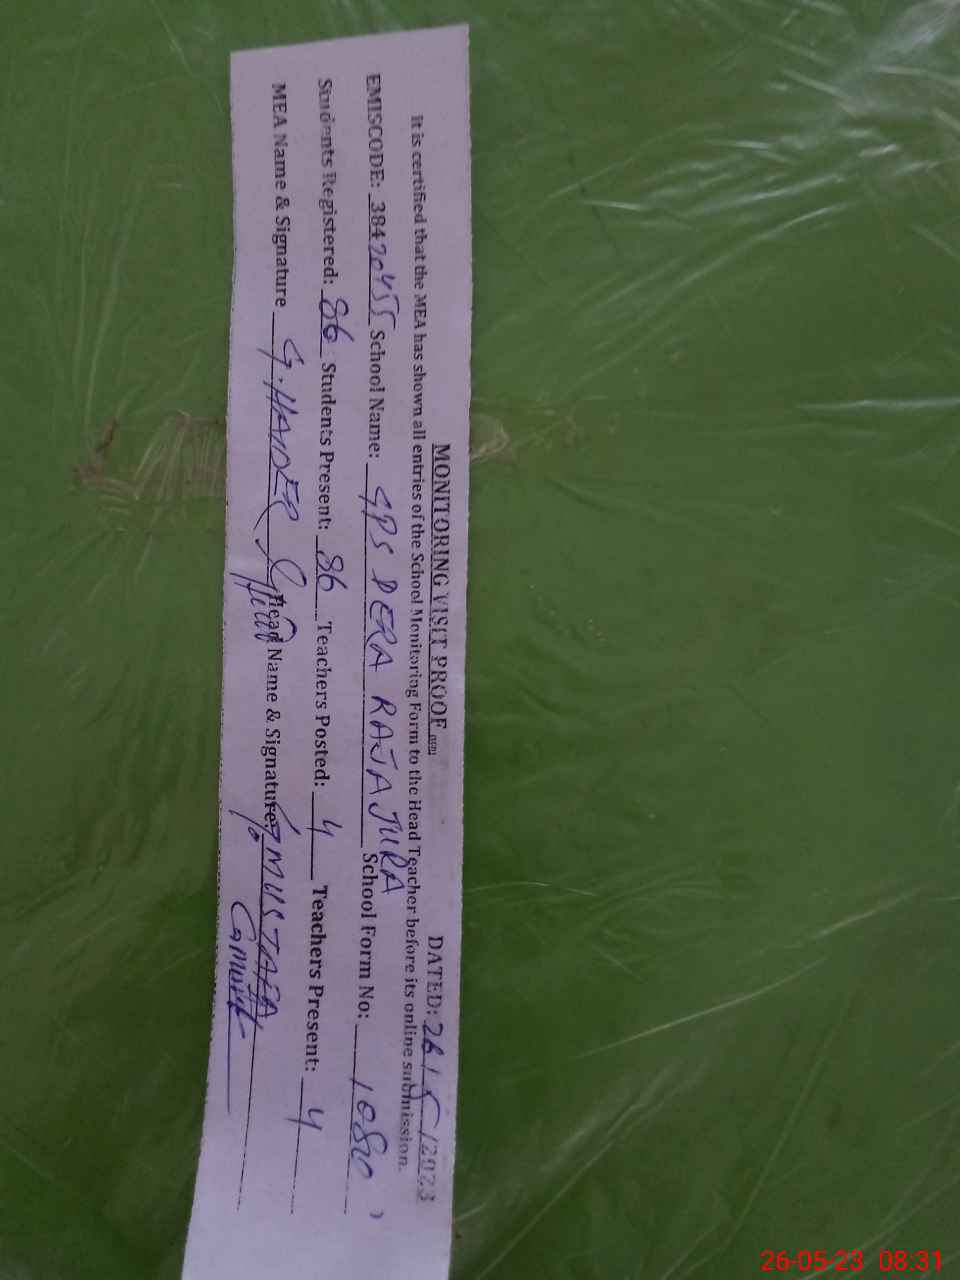 MONITORING VISIT PROOF DATED: 26/5/2023
It is certified that the MEA has shown all entries of the School Monitoring Form to the Head Teacher before its online submission.
EMISCODE: 38420455 School Name: GPS DERA RAJA JURA School Form No: 1080
Students Registered: 86 Students Present: 86 Teachers Posted: 4 Teachers Present: 4
MEA Name & Signature G.HAIDER Head Name & Signature: G.MUSTAFA
26-05-23 08:31